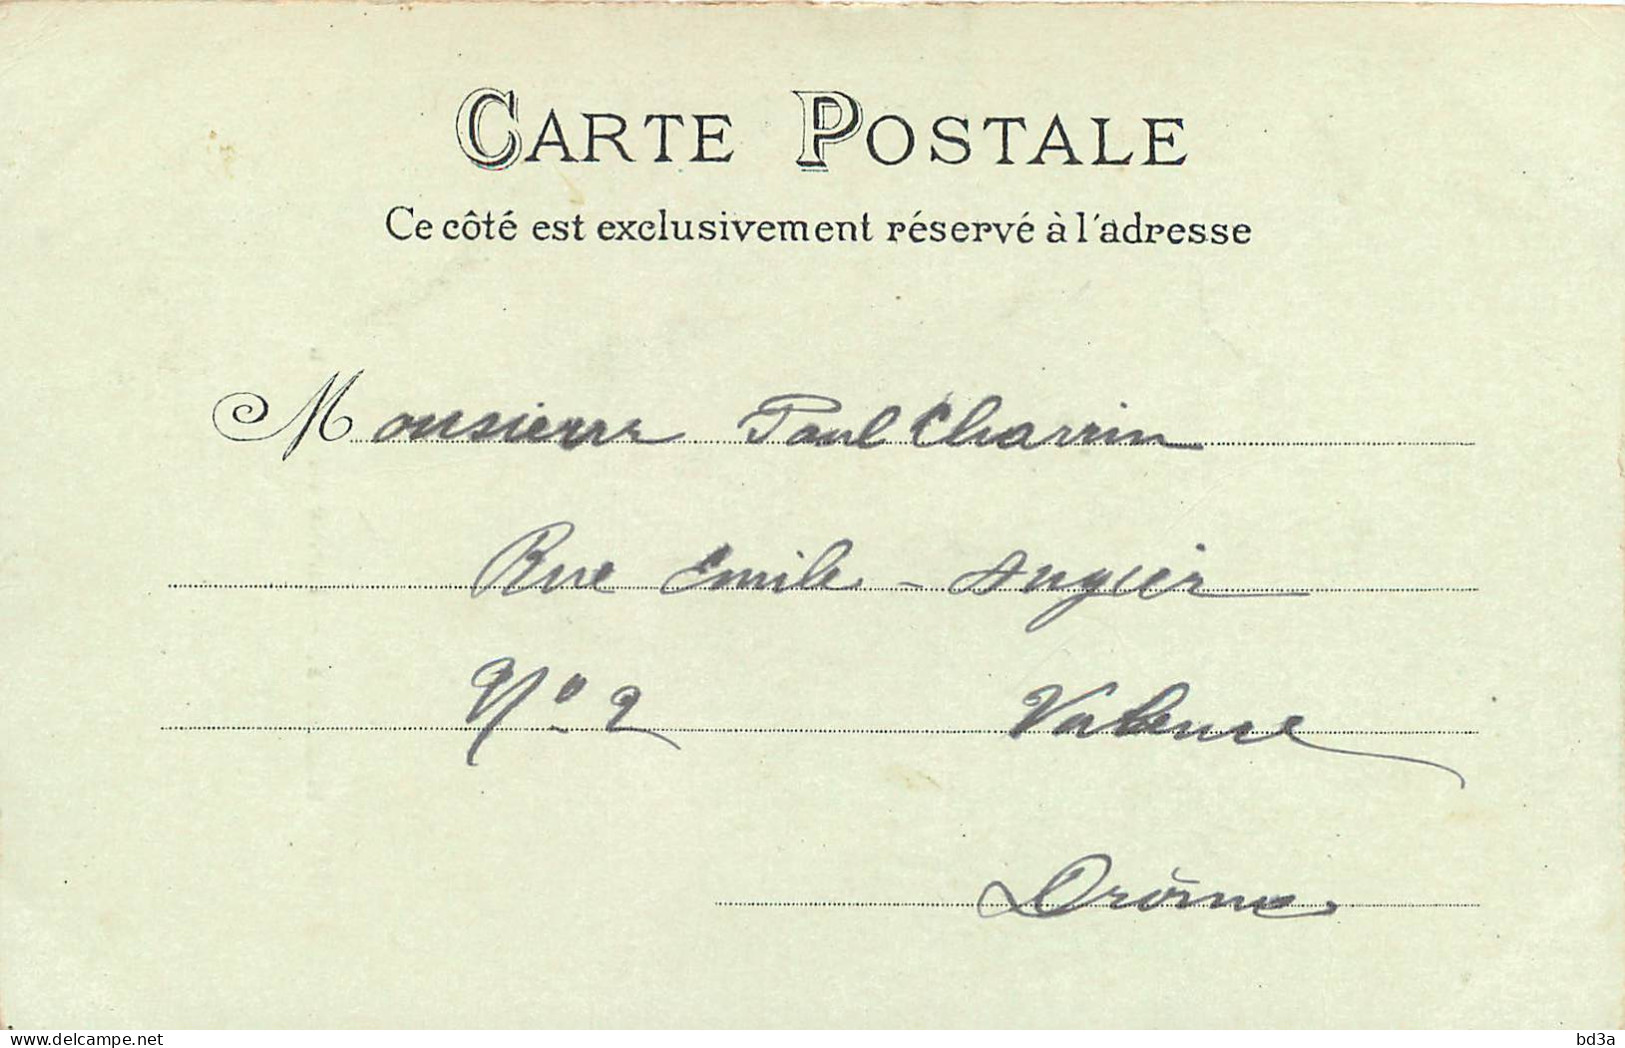 CARTE POSTALE
Ce côté est exclusivement réservé à l'adresse
Monsieur Paul Charrin
Rue Emile-Augier
N° 2 Valence
Drôme
www.delcampe.net bd3a